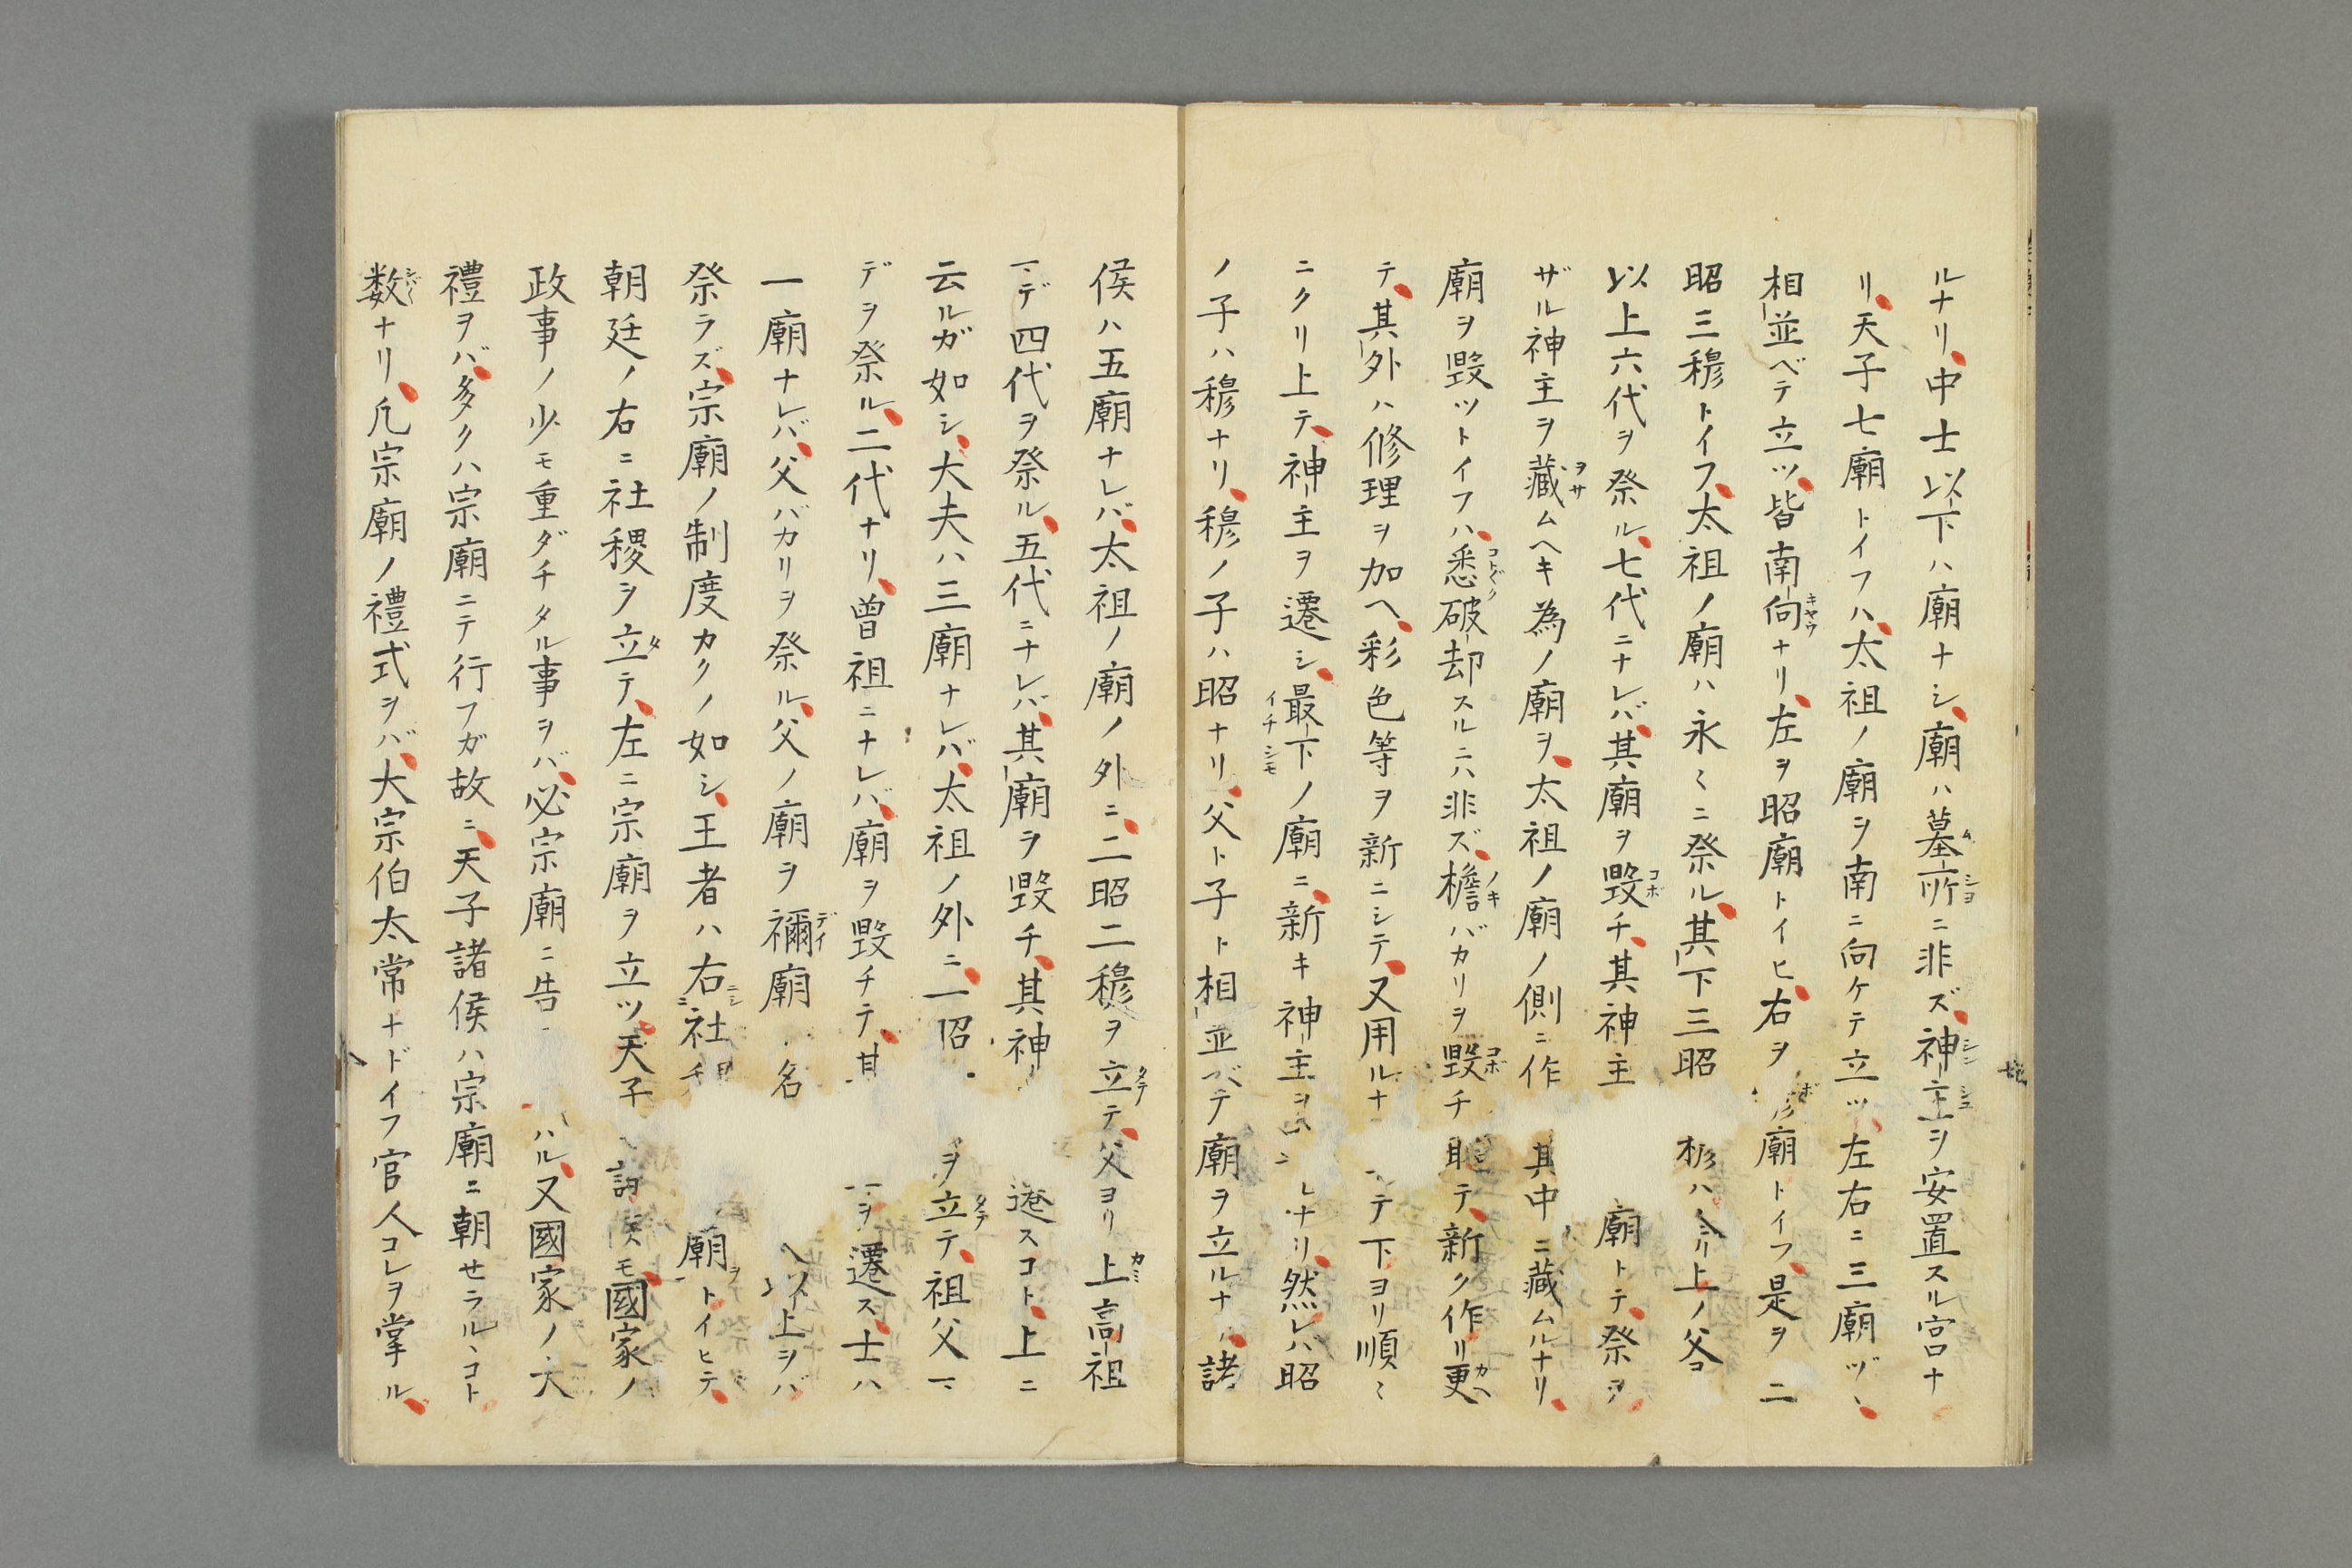 ルナリ中士以下ハ廟ナシ廟ハ墓所ニ非ズ神主ヲ安置スル宮ナ
リ天子七廟トイフハ太祖ノ廟ヲ南ニ向ケテ立ツ左右ニ三廟ヅヽ
相並ベテ立ツ皆南向ナリ左ヲ昭廟トイヒ右ヲ 廟トイフ是ヲ二
昭三穆トイフ太祖ノ廟ハ永くニ祭ル其下三昭 ハ 上ノ父
以上六代ヲ祭ル七代ニナレバ其廟ヲ毀チ其神主 廟トテ祭ヲ
ザル神主ヲ藏ムヘキ為ノ廟ヲ太祖ノ廟ノ側ニ作 其中ニ藏ムルナリ
廟ヲ毀ツトイフハ悉破却スルニハ非ズ檐バカリヲ毀チ テ新ク作リ更
テ其外ハ修理ヲ加ヘ彩色等ヲ新ニシテ又用ルナ テ下ヨリ順ミ
ニクリ上テ神主ヲ遷シ最下ノ廟ニ新キ神主ヲ ナリ然レバ昭
ノ子ハ穆ナリ穆ノ子ハ昭ナリ父ト子ト相並ベテ廟ヲ立ルナ 諸
侯ハ五廟ナレバ太祖ノ廟ノ外ニ二昭二穆ヲ立テ父ヨリ上高祖
マデ四代ヲ祭ル五代ニナレバ其廟ヲ毀チ其神 遷スコト上ニ
云ルガ如シ大夫ハ三廟ナレバ太祖ノ外ニ一昭 ヲ立テ祖父マ
デヲ祭ル二代ナリ曽祖ニナレバ廟ヲ毀チテ其 ヲ遷ス士ハ
一廟ナレバ父バカリヲ祭ル父ノ廟ヲ禰廟 名 以上ヲバ
祭ラズ宗廟ノ制度カクノ如シ王者ハ右ニ社 廟トイヒテ
朝廷ノ右ニ社稷ヲ立テ左ニ宗廟ヲ立ツ天子 諸侯モ國家ノ
政事ノ少モ重ダチタル事ヲバ必宗廟ニ告 ハル又國家ノ大
禮ヲバ多クハ宗廟ニテ行フガ故ニ天子諸侯ハ宗廟ニ朝セラルヽコト
数ナリ凡宗廟ノ禮式ヲバ大宗伯太常ナドイフ官人コレヲ掌ル